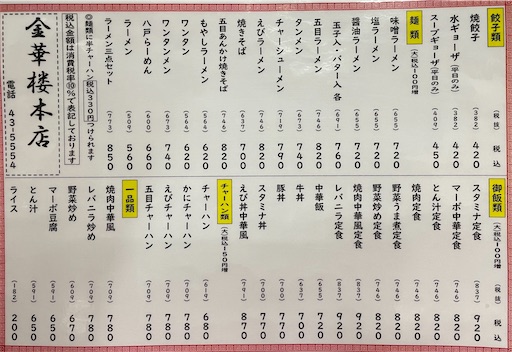 餃子類 (税抜) 税込
焼餃子 (382) 420
水ギョーザ(平日のみ) (382) 420
スープギョーザ(平日のみ) (409) 450
麺類 (大)税込100円増
味噌ラーメン (655) 720
塩ラーメン
醤油ラーメン (655) 720
玉子入・バター入 各 (691) 760
五目ラーメン (746) 820
タンメン (673) 740
チャーシューメン (719) 790
えびラーメン (727) 800
焼きそば (637) 700
五目あんかけ焼きそば (746) 820
もやしラーメン (564) 620
ワンタンメン
ワンタン
八戸らーめん (600) 660
ラーメン (509) 560
ラーメン三点セット (773) 850
◎麺類に半チャーハン(税込330円)つけられます
税込金額は消費税率10%で表記しております
金華楼本店
電話 43-5554
御飯類 (大)税込100円増 (税抜) 税込
スタミナ定食 (837) 920
マーボ中華定食 (746) 820
とん汁定食 (746) 820
焼肉定食 (746) 820
野菜うま煮定食 (746) 820
野菜炒め定食 (746) 820
焼肉中華風定食 (837) 920
レバニラ定食 (837) 920
中華飯 (655)
牛丼 (637) 700
豚丼 (700) 770
スタミナ丼 (700) 770
えび丼中華風 (791) 870
チャーハン類 (大)税込150円増
チャーハン (619) 680
かにチャーハン (709) 780
えびチャーハン (709) 780
五目チャーハン (709) 780
一品類
焼肉中華風 (709) 780
レバニラ炒め (709) 780
野菜炒め (609) 670
マーボ豆腐 (591) 650
とん汁 (591) 650
ライス (182) 200